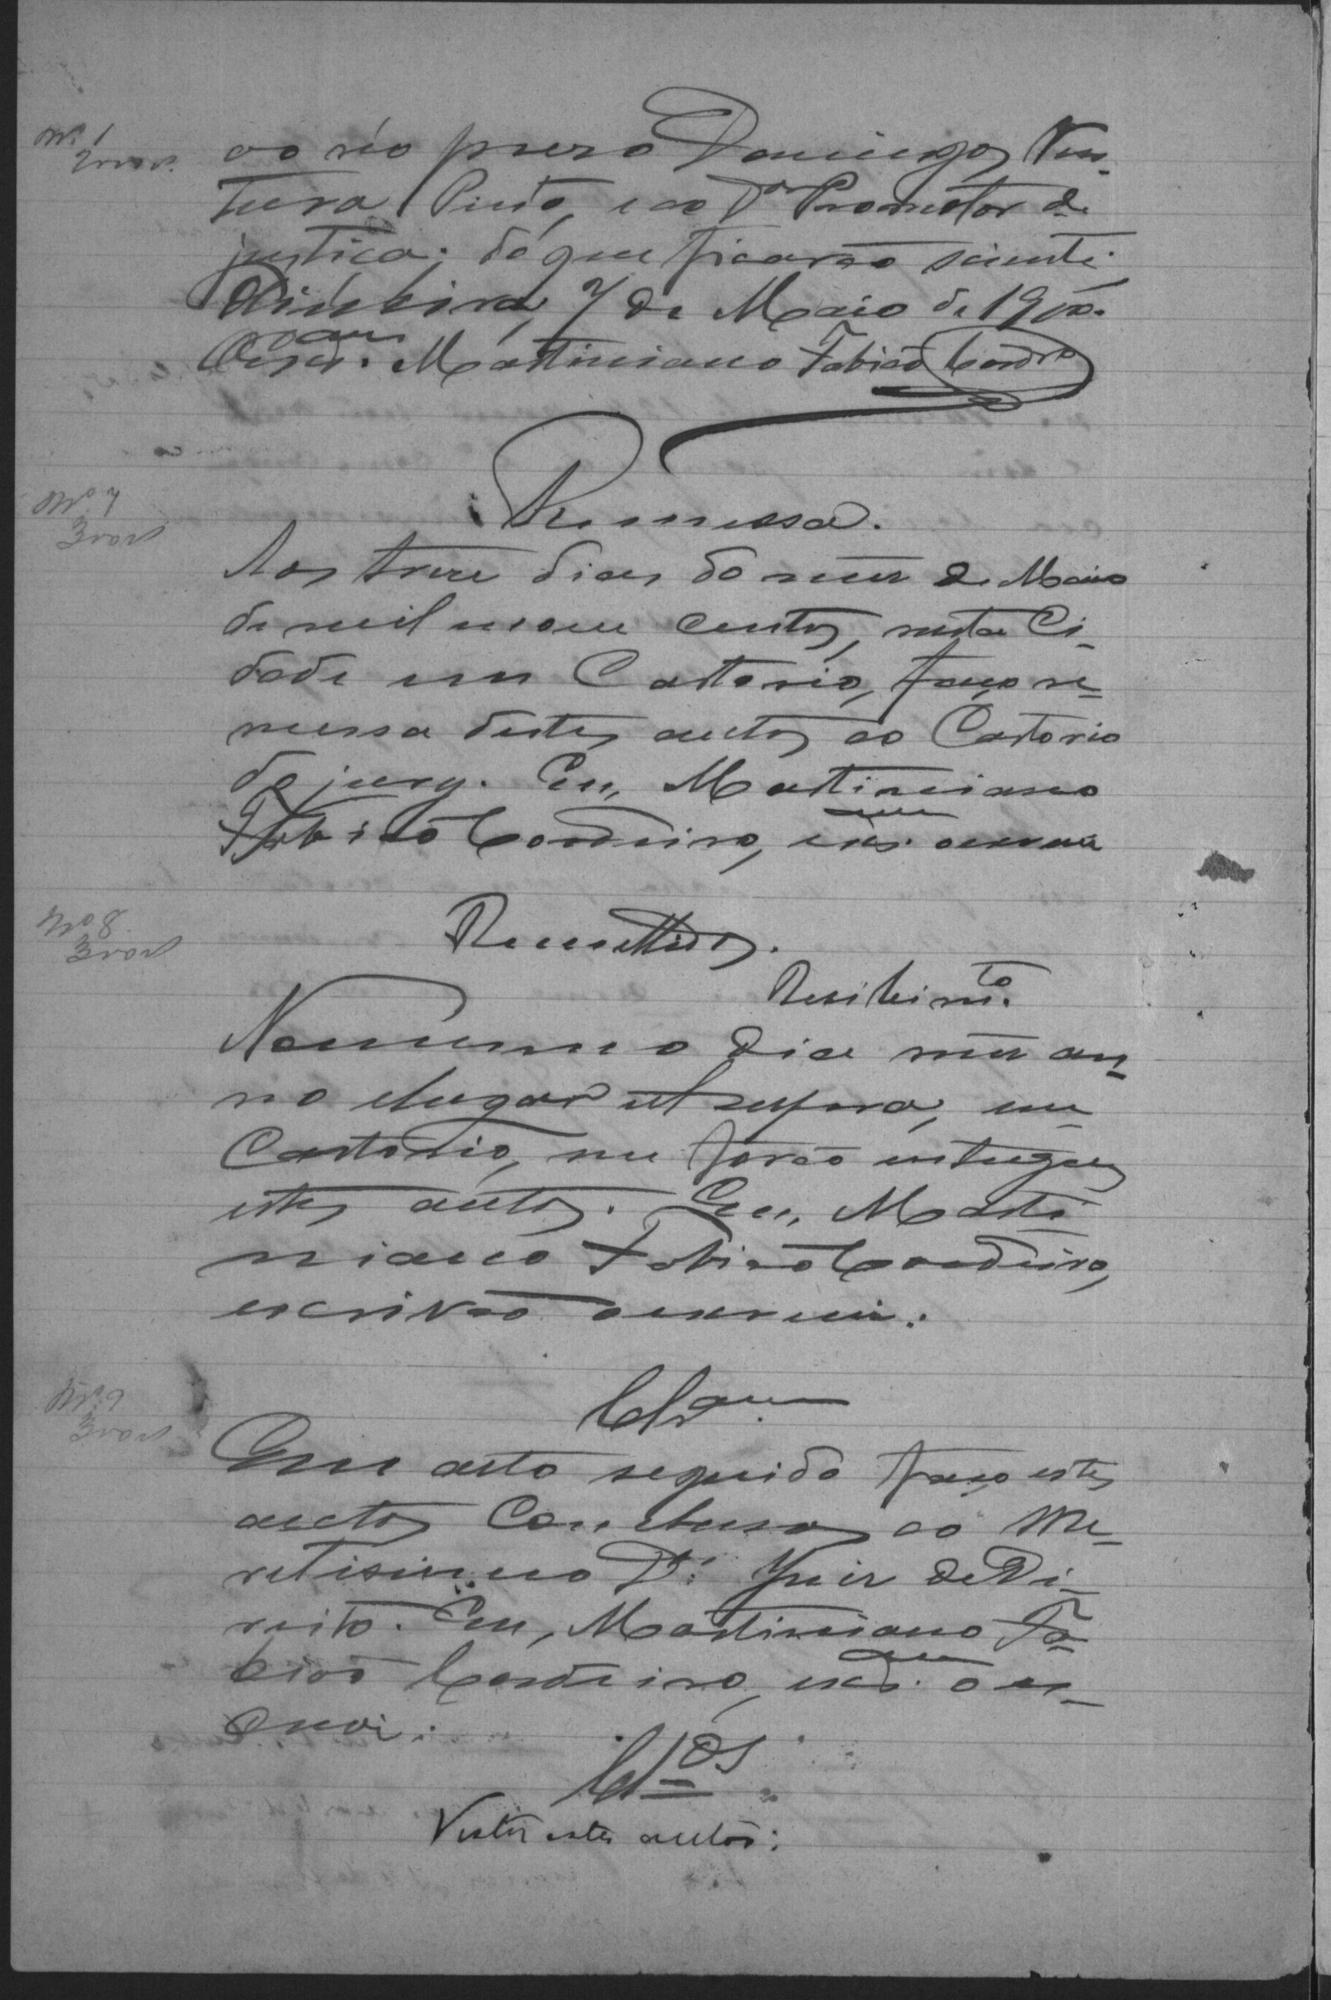 ao réo preso Domingos Ven-
tura Pinto, e ao Dr Promotor de
justiça; do que ficarão sciente.
7 de Maio de 1900.
O escrivam. Martiniano Fabião Cordro
Remessa.
Aos treze dias do mez de Maio
de mil nove centos, nesta Ci-
dade em Cartorio, faço re-
messa destes autos ao Cartorio
do jury. Eu, Martiniano
Fabião Cordeiro, escrivam o escrevi
Remettidos.
Recibimto.
No mesmo dia mez an-
no e lugar ut supra, em
Cartorio, me forão entregues
estes autos. Eu, Marti
niano Fabião Cordeiro,
escrivão o escrevi.
Clsam.
Em acto seguido faço estes
autos Conclusos ao Me-
retissimo Dr. Juiz de Di-
reito. Eu, Martiniano Fa-
bião Cordeiro, escrivam o es-
crevi.
Clos
Vistos estes autos:
No 1
No 7
No 8
No 9